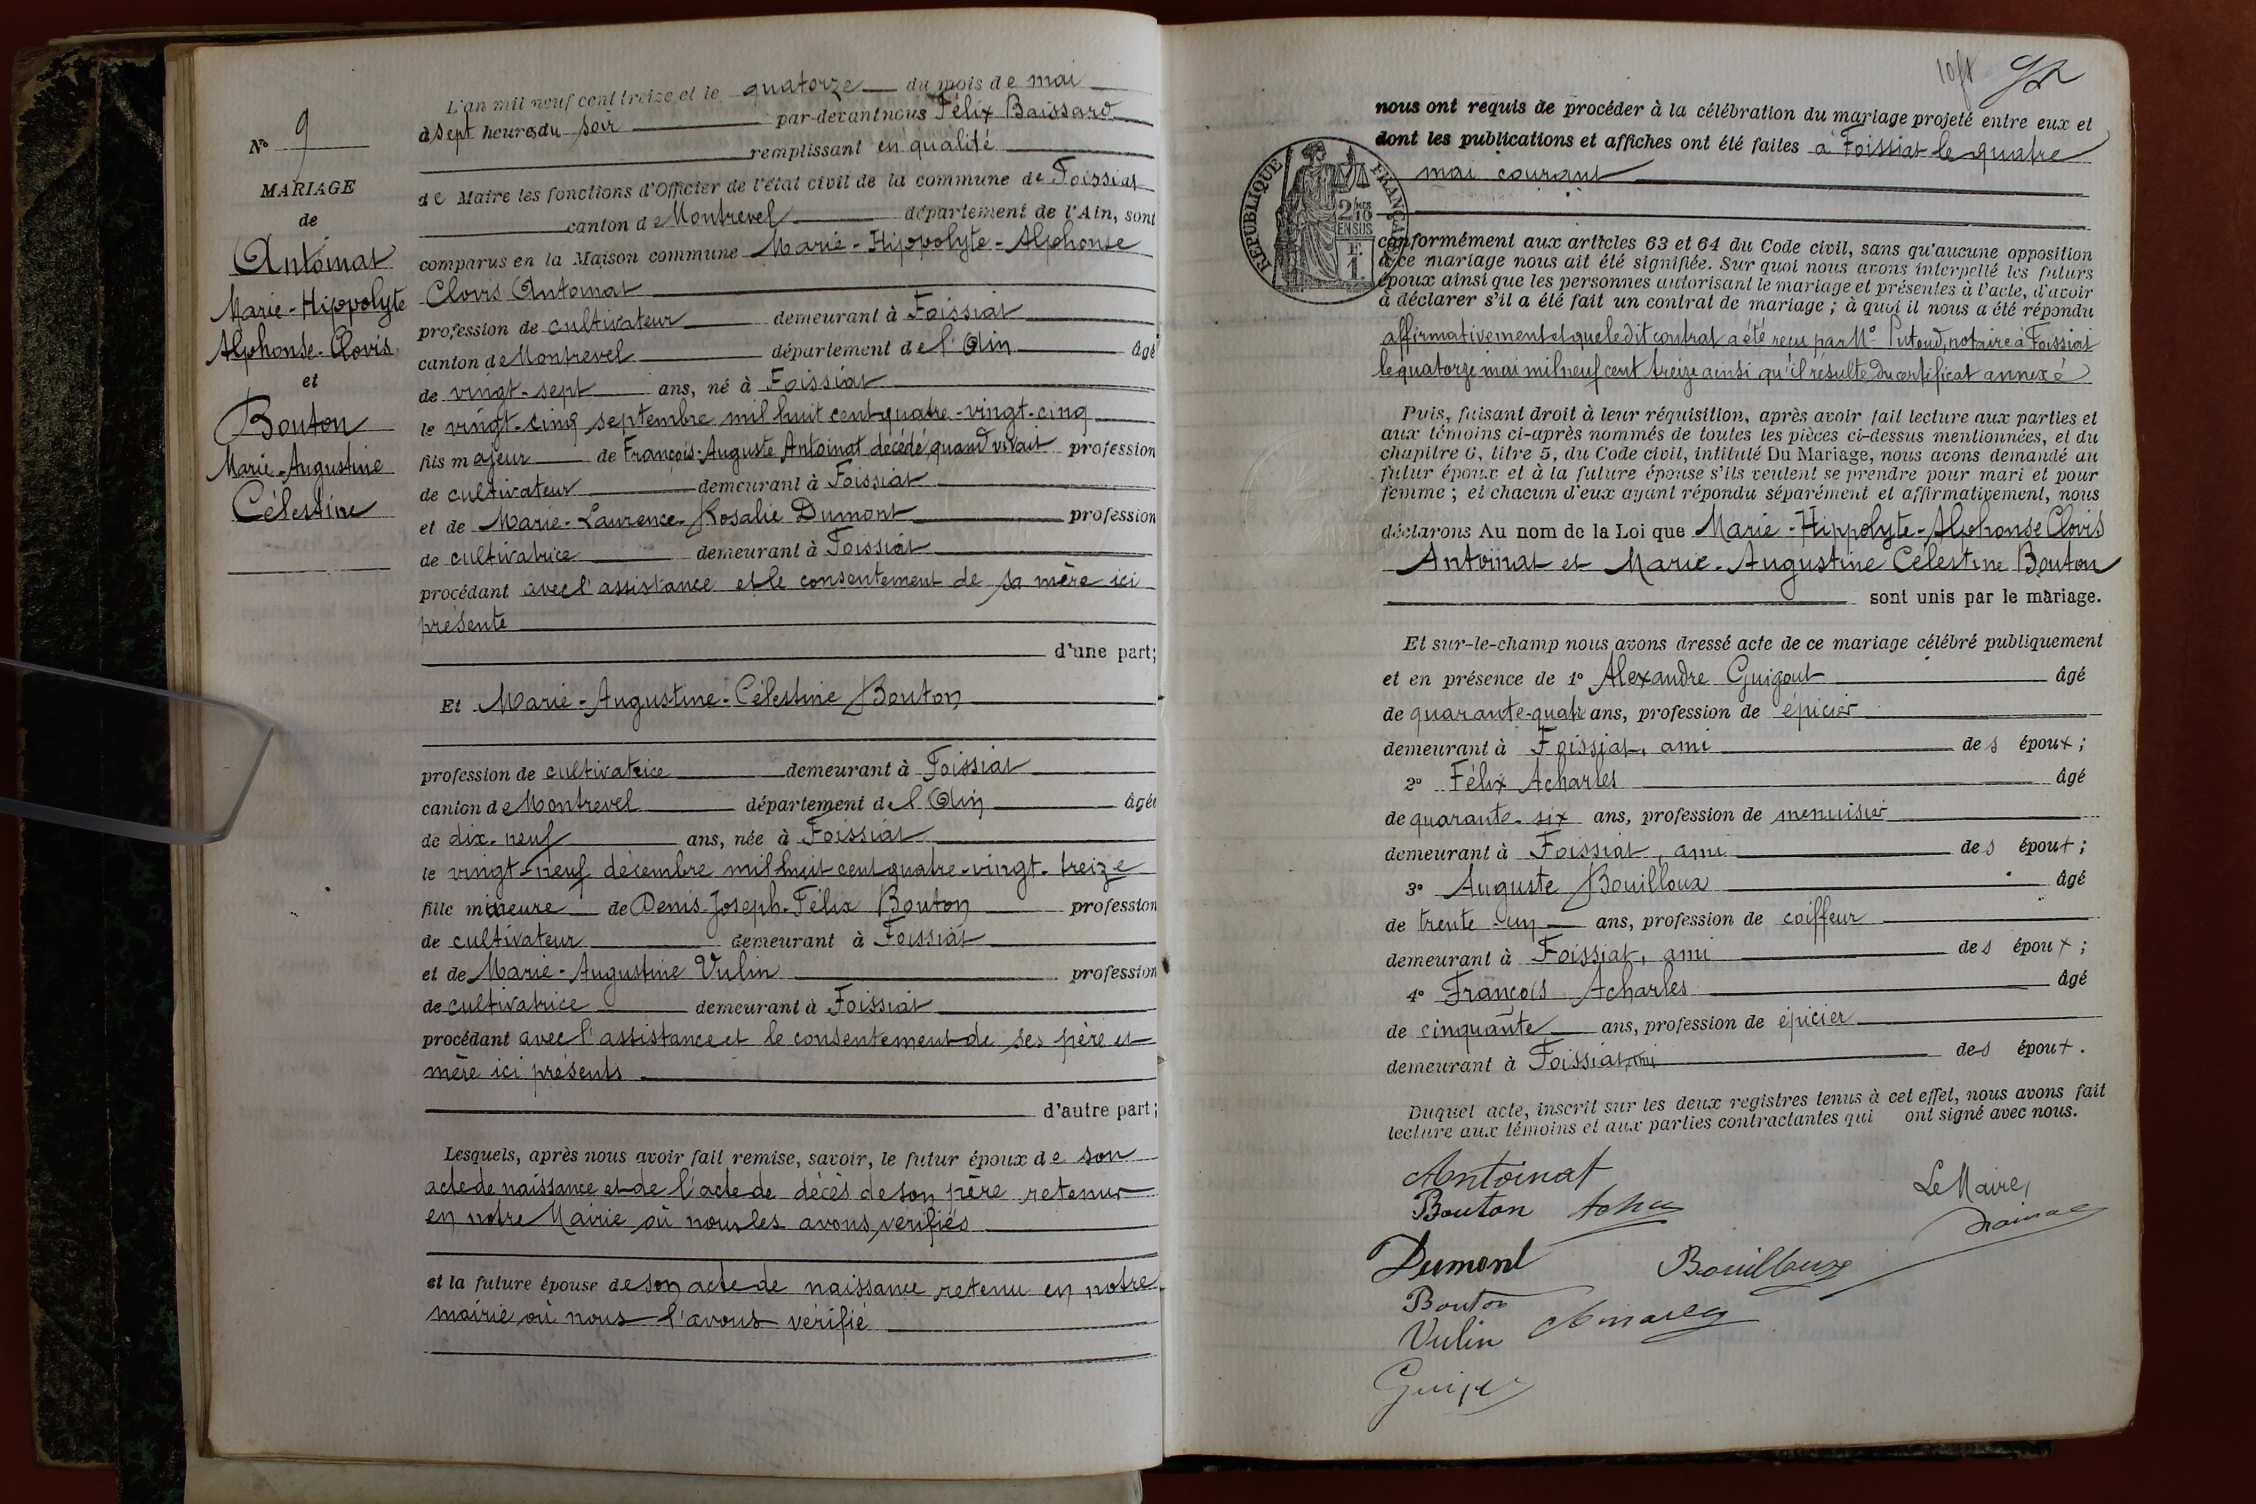 N° 9
MARIAGE
de
Antoinat
Marie-Hippolyte
Alphonse-Clovis
et
Bouton
Marie-Augustine
Célestine
L'an mil neuf cent treize et le quatorze du mois de mai
à sept heures du soir par-devant nous Félix
remplissant en qualité
de Maire les fonctions d'Officier de l'état civil de la commune de Foissiat
canton de Montrevel département de l'Ain, sont
comparus en la Maison commune Marie-Hippolyte-Alphonse
Clovis Antoinat
profession de cultivateur demeurant à Foissiat
canton de Montrevel département de l'Ain âgé
de vingt-sept ans, né à Foissiat
le vingt-cinq septembre mil huit cent quatre-vingt-cinq
fils majeur de François-Auguste Antoinat décédé quand vivait profession
de cultivateur demeurant à Foissiat
et de Marie-Laurence-Rosalie Dumont profession
de cultivatrice demeurant à Foissiat
procédant avec l'assistance et le consentement de sa mère ici
présente
d'une part;
Et Marie-Augustine-Célestine Bouton
profession de cultivatrice demeurant à Foissiat
canton de Montrevel département de l'Ain âgée
de dix-neuf ans, née à Foissiat
le vingt-neuf décembre mil huit cent quatre-vingt-treize
fille mineure de Denis-Joseph-Félix Bouton profession
de cultivateur demeurant à Foissiat
et de Marie-Augustine Vulin profession
de cultivatrice demeurant à Foissiat
procédant avec l'assistance et le consentement de ses père et
mère ici présents
d'autre part;
Lesquels, après nous avoir fait remise, savoir, le futur époux de son
acte de naissance et de l'acte de décès de son père retenus
en notre Mairie où nous les avons vérifiés
et la future épouse de son acte de naissance retenu en notre
mairie où nous l'avons vérifié
nous ont requis de procéder à la célébration du mariage projeté entre eux et
dont les publications et affiches ont été faites à Foissiat le quatre
mai courant
RÉPUBLIQUE FRANÇAISE
2/10
EN SUS
1 F.
conformément aux articles 63 et 64 du Code civil, sans qu'aucune opposition
à ce mariage nous ait été signifiée. Sur quoi nous avons interpellé les futurs
époux ainsi que les personnes autorisant le mariage et présentes à l'acte, d'avoir
à déclarer s'il a été fait un contrat de mariage ; à quoi il nous a été répondu
affirmativement et que ledit contrat a été reçu par Me Putoud, notaire à Foissiat
le quatorze mai mil neuf cent treize ainsi qu'il résulte du certificat annexé
Puis, faisant droit à leur réquisition, après avoir fait lecture aux parties et
aux témoins ci-après nommés de toutes les pièces ci-dessus mentionnées, et du
chapitre 6, titre 5, du Code civil, intitulé Du Mariage, nous avons demandé au
futur époux et à la future épouse s'ils veulent se prendre pour mari et pour
femme ; et chacun d'eux ayant répondu séparément et affirmativement, nous
déclarons Au nom de la Loi que Marie-Hippolyte-Alphonse Clovis
Antoinat et Marie-Augustine Célestine Bouton
sont unis par le mariage.
Et sur-le-champ nous avons dressé acte de ce mariage célébré publiquement
et en présence de 1° Alexandre Guigout âgé
de quarante-quatre ans, profession de épicier
demeurant à Foissiat, ami des époux ;
2° Félix Acharles âgé
de quarante-six ans, profession de menuisier
demeurant à Foissiat, ami des époux ;
3° Auguste Bouilloux âgé
de trente-un ans, profession de coiffeur
demeurant à Foissiat, ami des époux ;
4° François Acharles âgé
de cinquante ans, profession de épicier
demeurant à Foissiat, ami des époux.
Duquel acte, inscrit sur les deux registres tenus à cet effet, nous avons fait
lecture aux témoins et aux parties contractantes qui ont signé avec nous.
Antoinat
Bouton
Le Maire,
Dumont
Bouilloux
Bouton
Vulin